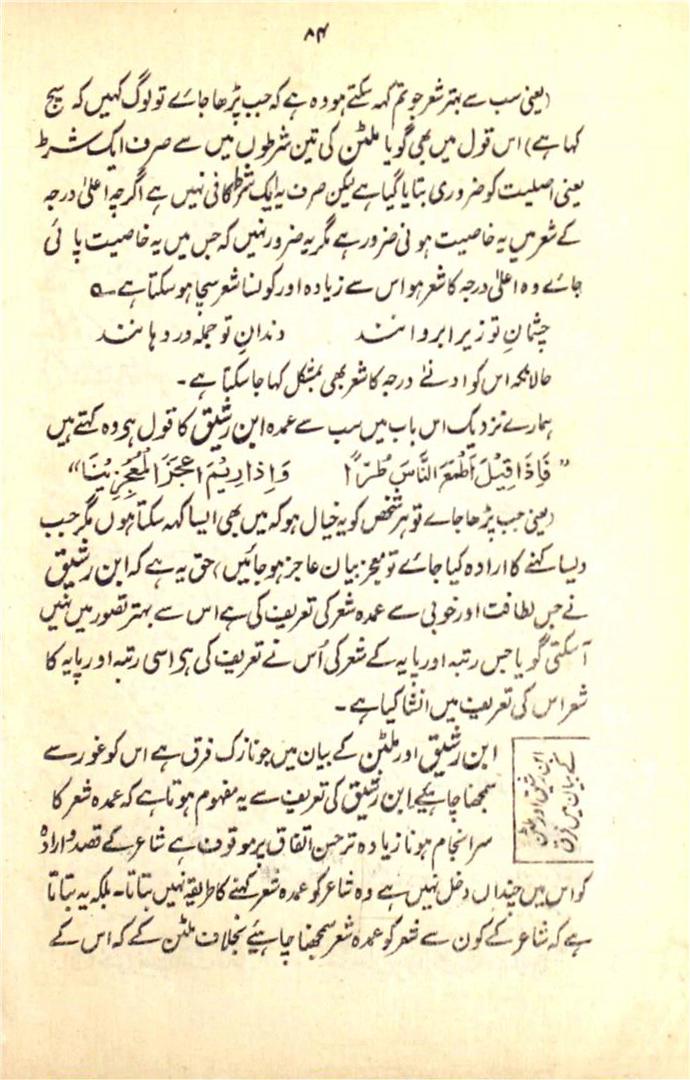 ۸۴
(یعنی سب سے بہتر شعر جو تم کہہ سکتے ہو وہ ہے کہ جب پڑھا جائے تو لوگ کہیں کہ سچ
کہا ہے) اس قول میں بھی گویا ملٹن کی تین شرطوں میں سے صرف ایک شرط
یعنی اصلیت کو ضروری بتایا گیا ہے لیکن صرف یہ ایک شرط کافی نہیں ہے اگرچہ اعلیٰ درجہ
کے شعر میں یہ خاصیت ہونی ضرور ہے مگر یہ ضرور نہیں کہ جس میں یہ خاصیت پائی
جائے وہ اعلیٰ درجہ کا شعر ہو اس سے زیادہ اور کونسا شعر سچا ہو سکتا ہے۔ ؎
چشمانِ تو زیر ابروانند دندانِ تو جملہ در دہانند
حالانکہ اس کو ادنےٰ درجہ کا شعر بھی بمشکل کہا جا سکتا ہے۔
ہمارے نزدیک اس باب میں سب سے عمدہ ابن رشیق کا قول ہی وہ کہتے ہیں
”فَاِذَا قِیْلَ اَطْمَعَ النَّاسَ طُرًّا وَاِذَا رِیْمَ اَعْجَزَ الْمُعْجِزِیْنَا“
(یعنی جب پڑھا جاے تو ہر شخص کو یہ خیال ہو کہ میں بھی ایسا کہہ سکتا ہوں مگر جب
ویسا کہنے کا ارادہ کیا جاے تو معجز بیان عاجز ہو جائیں) حق یہ ہے کہ ابن رشیق
نے جس لطافت اور خوبی سے عمدہ شعر کی تعریف کی ہے اس سے بہتر تصور میں نہیں
آ سکتی گویا جس رتبہ اور پایہ کے شعر کی اُس نے تعریف کی ہی اسی رتبہ اور پایہ کا
شعر اس کی تعریف میں انشا کیا ہے۔
ابن رشیق اور ملٹن
کے بیان میں فرق
ابن رشیق اور ملٹن کے بیان میں جو نازک فرق ہے اس کو غور سے
سمجھنا چاہیئے ابن رشیق کی تعریف سے یہ مفہوم ہوتا ہے کہ عمدہ شعر کا
سر انجام ہونا زیادہ تر حسن اتفاق پر موقوف ہے شاعر کے قصد و ارادہ
کو اس میں چنداں دخل نہیں ہے وہ شاعر کو عمدہ شعر کہنے کا طریقہ نہیں بتاتا۔ بلکہ یہ بتاتا
ہے کہ شاعر کے کون سے شعر کو عمدہ شعر سمجھنا چاہیئے بخلاف ملٹن کے کہ اس کے